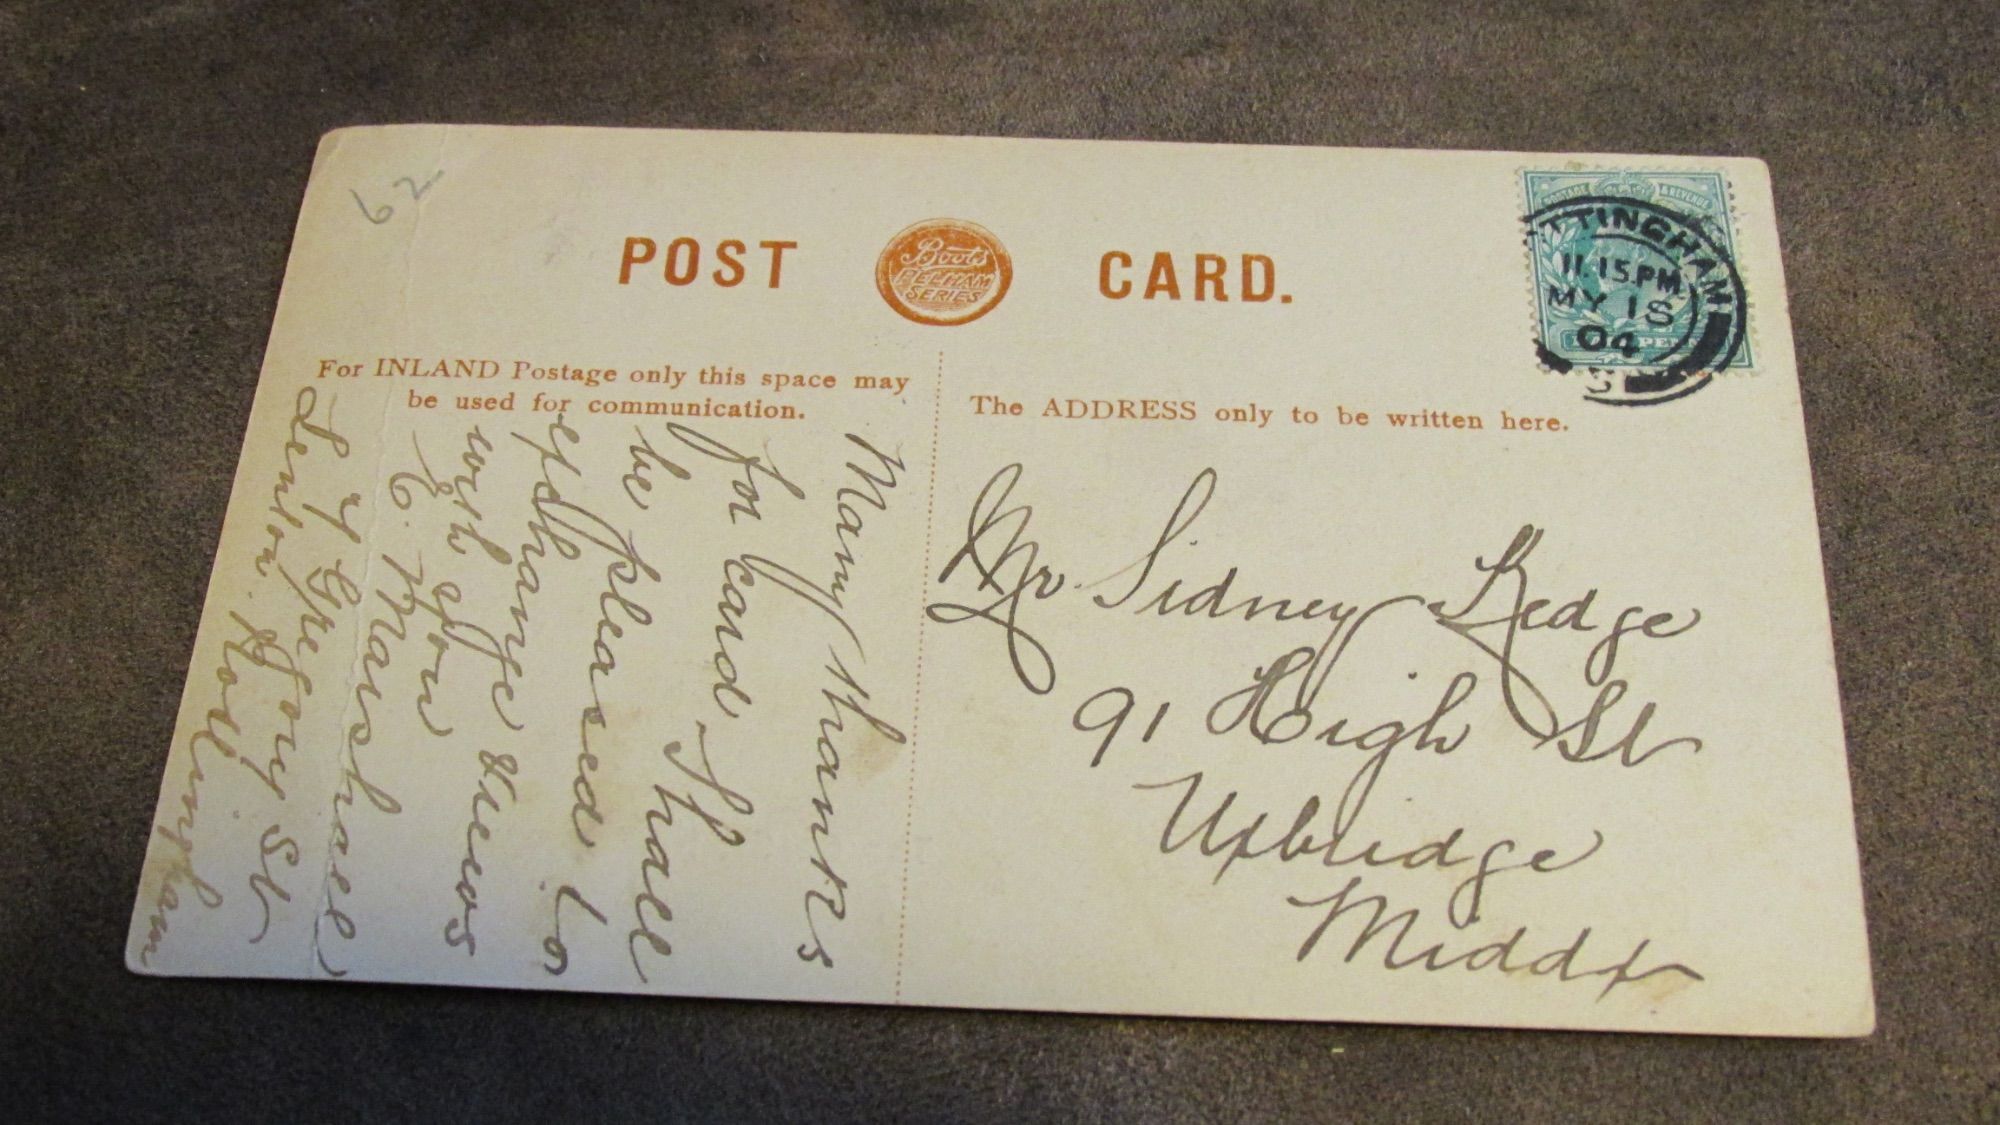 62
POST CARD.
Boots
PELHAM
SERIES
POSTAGE & REVENUE
TTINGHAM
11.15PM
MY 18
04
For INLAND Postage only this space may
be used for communication.
The ADDRESS only to be written here.
Many thanks
for card. Shall
be pleased to
exchange views
with you
E. Marshall
Gregory St
Lenton. Nottingham
Mr. Sidney Kedge
91 High St
Uxbridge
Middx